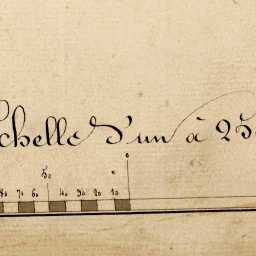 chelle d'un à 25
0
50
80 70 60 40 30 20 10